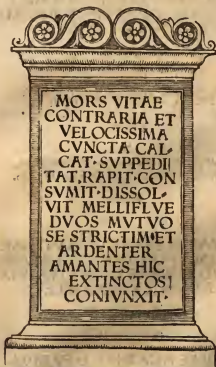 MORS VITAE
CONTRARIA ET
VELOCISSIMA
CVNCTA CAL
CAT·SVPPEDI
TAT,RAPIT·CON
SVMIT·DISSOL⸗
VIT MELLIFLVE
DVOS MVTVO
SE STRICTIM·ET
ARDENTER
AMANTES HIC
EXTINCTOS
CONIVNXIT·